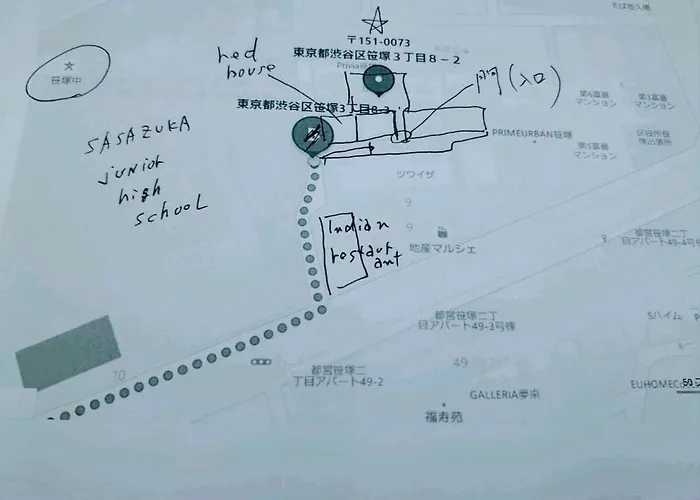 〒151-0073
東京都渋谷区笹塚3丁目8-2
red
house
Privia
笹塚中
門(入口)
東京都渋谷区笹塚3丁目8-3
第6富嘉
マンション
第3富嘉
マンション
SASAZUKA
junior
high
school
PRIMEURBAN笹塚
第5富嘉
マンション
区役所笹
塚出張所
ツワイザ
9
9
Indian
restaurant
地産マルシェ
都営笹塚二丁
目アパート49-4号
都営笹塚二丁
目アパート49-3号棟
Sハイム
10
都営笹塚二
丁目アパート49-2
49
GALLERIA夢来
EUHOME
福寿苑